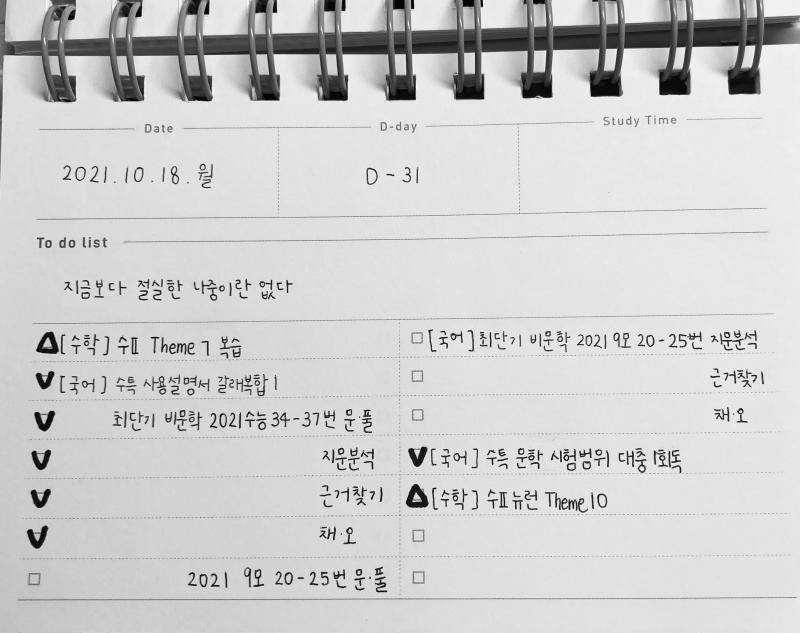 Date D-day Study Time
2021.10.18.월 D-31
To do list
지금보다 절실한 나중이란 없다
[수학] 수Ⅱ Theme 7 복습
[국어] 수특 사용설명서 갈래복합 1
최단기 비문학 2021수능 34-37번 문·풀
지문분석
근거찾기
채·오
2021 9모 20-25번 문·풀
[국어] 최단기 비문학 2021 9모 20-25번 지문분석
근거찾기
채·오
[국어] 수특 문학 시험범위 대충 1회독
[수학] 수Ⅱ 뉴런 Theme 10